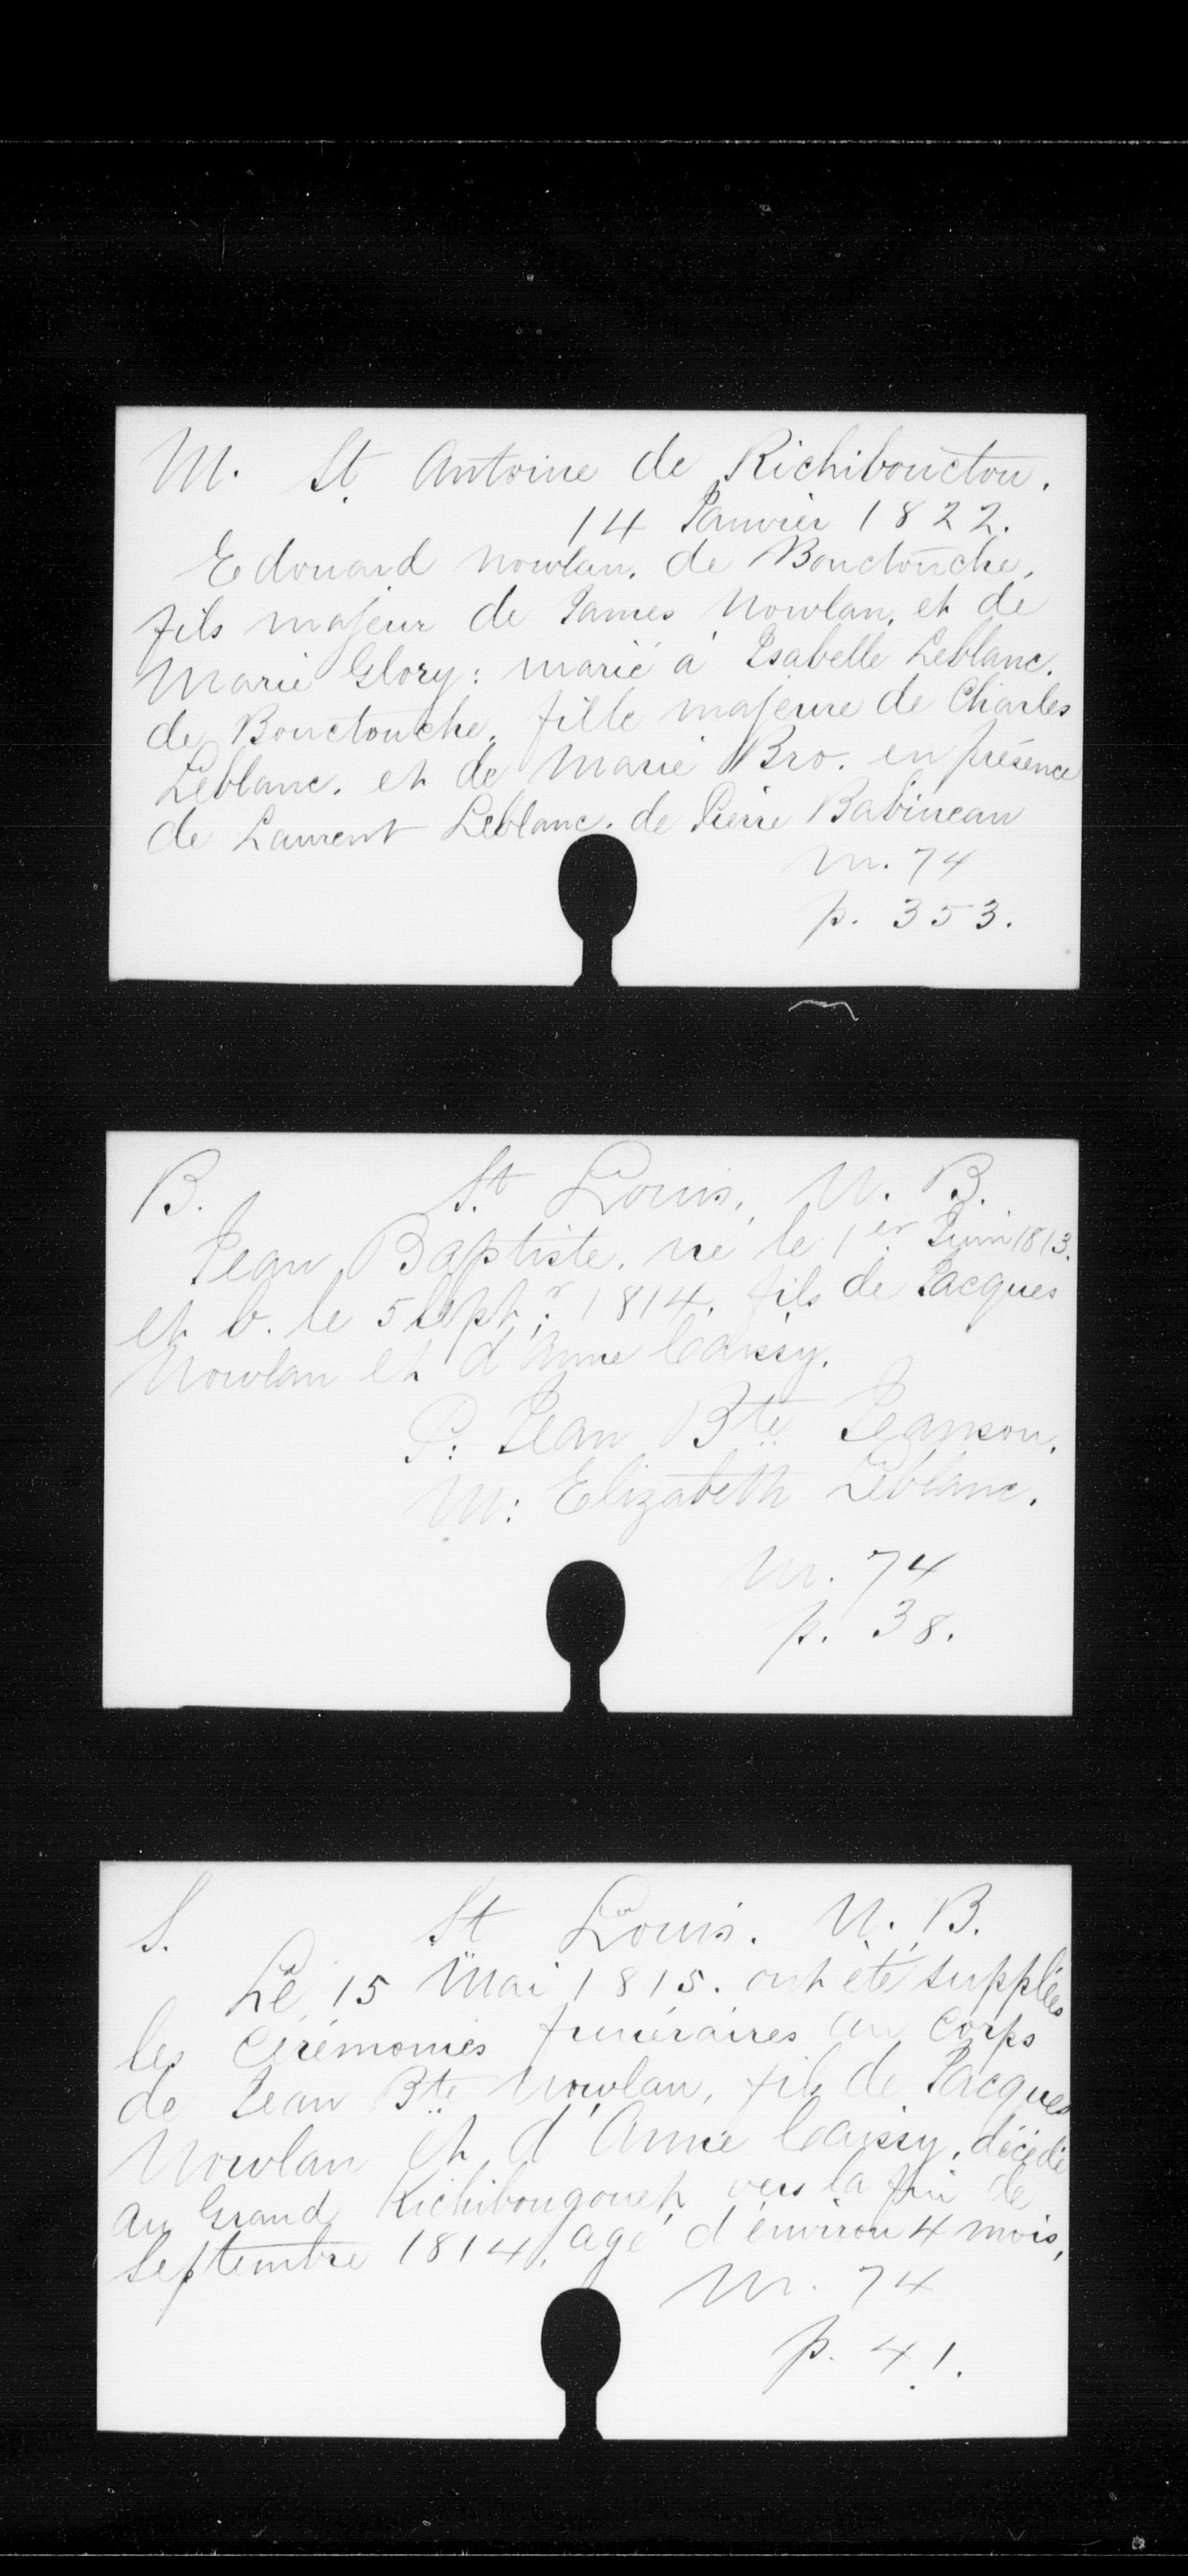 M. St Antoine de Richibouctou.
14 Janvier 1822.
Edouard Nowlan. de Bouctouche.
fils majeur de James Nowlan. et de
Marie Glory: marié à Isabelle Leblanc.
de Bouctouche. fille majeure de Charles
Leblanc. et de Marie Bro. en présence
de Laurent Leblanc. de Pierre Babineau
m. 74
p. 353.
B. St Louis, N. B.
Jean Baptiste. né le 1er Juin 1813.
et b. le 5 Sept. 1814. fils de Jacques
Nowlan et d'Anne Caissy.
P: Jean Bte
M: Elizabeth Leblanc.
m. 74
p. 38.
S. St Louis. N. B.
Le 15 Mai 1815. ont été supplées
les cérémonies funéraires au corps
de Jean Bte Nowlan, fils de Jacques
Nowlan et d'Anne Caissy, décédé
au Grand Richibougouet vers la fin de
Septembre 1814, agé d'environ 4 mois,
m. 74
p. 41.